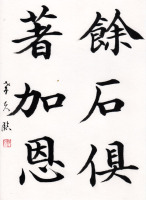 餘石俱
著加恩